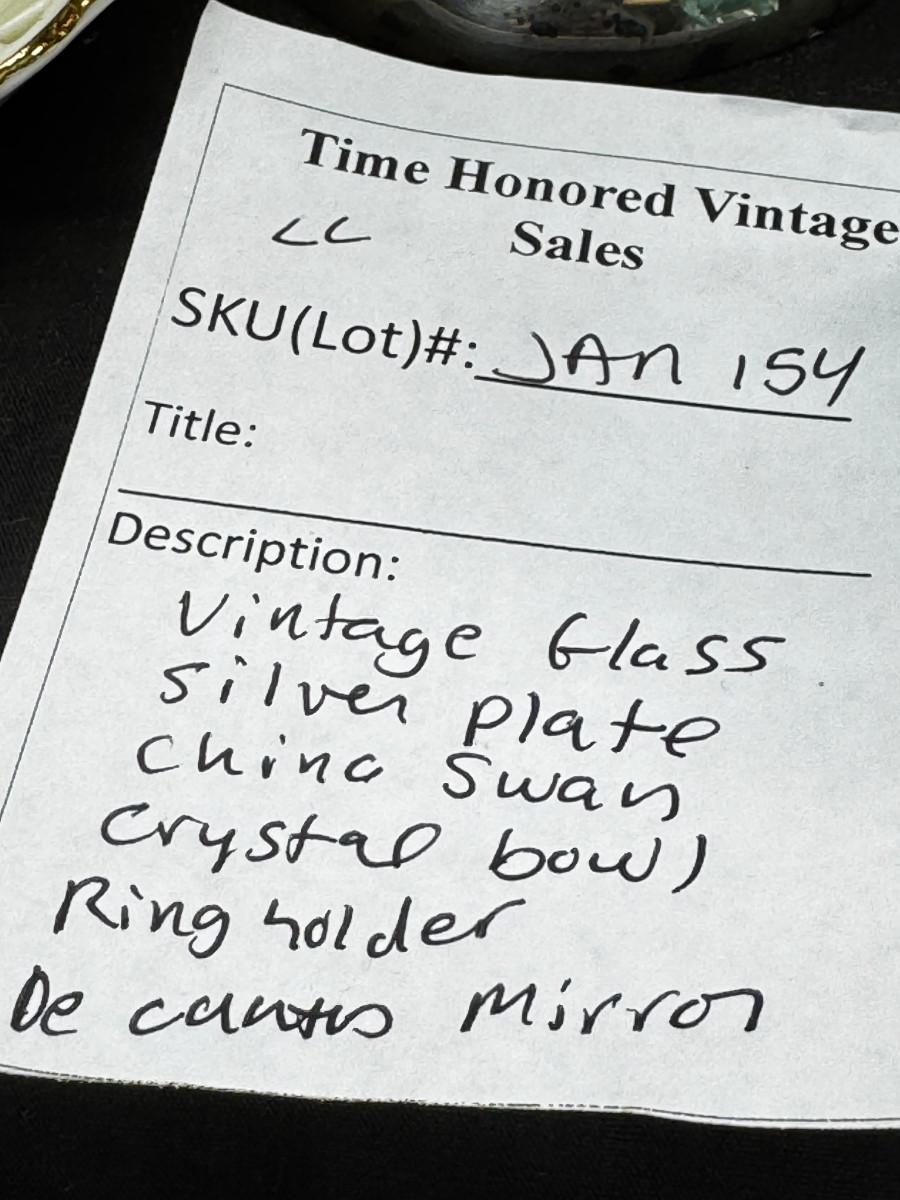 Time Honored Vintage
Sales
LL
SKU(Lot)#: JAN 154
Title:
Description:
Vintage Glass
Silver plate
China Swan
Crystal bowl
Ring holder
Mirror